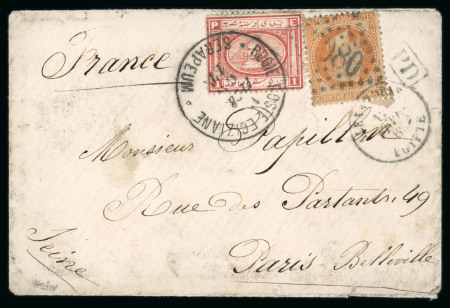 France
P E
POSTE EGIZIANE
SERAPEUM
PD
Monsieur Papillon
Rue des Partants 49
Paris-Belleville
Seine